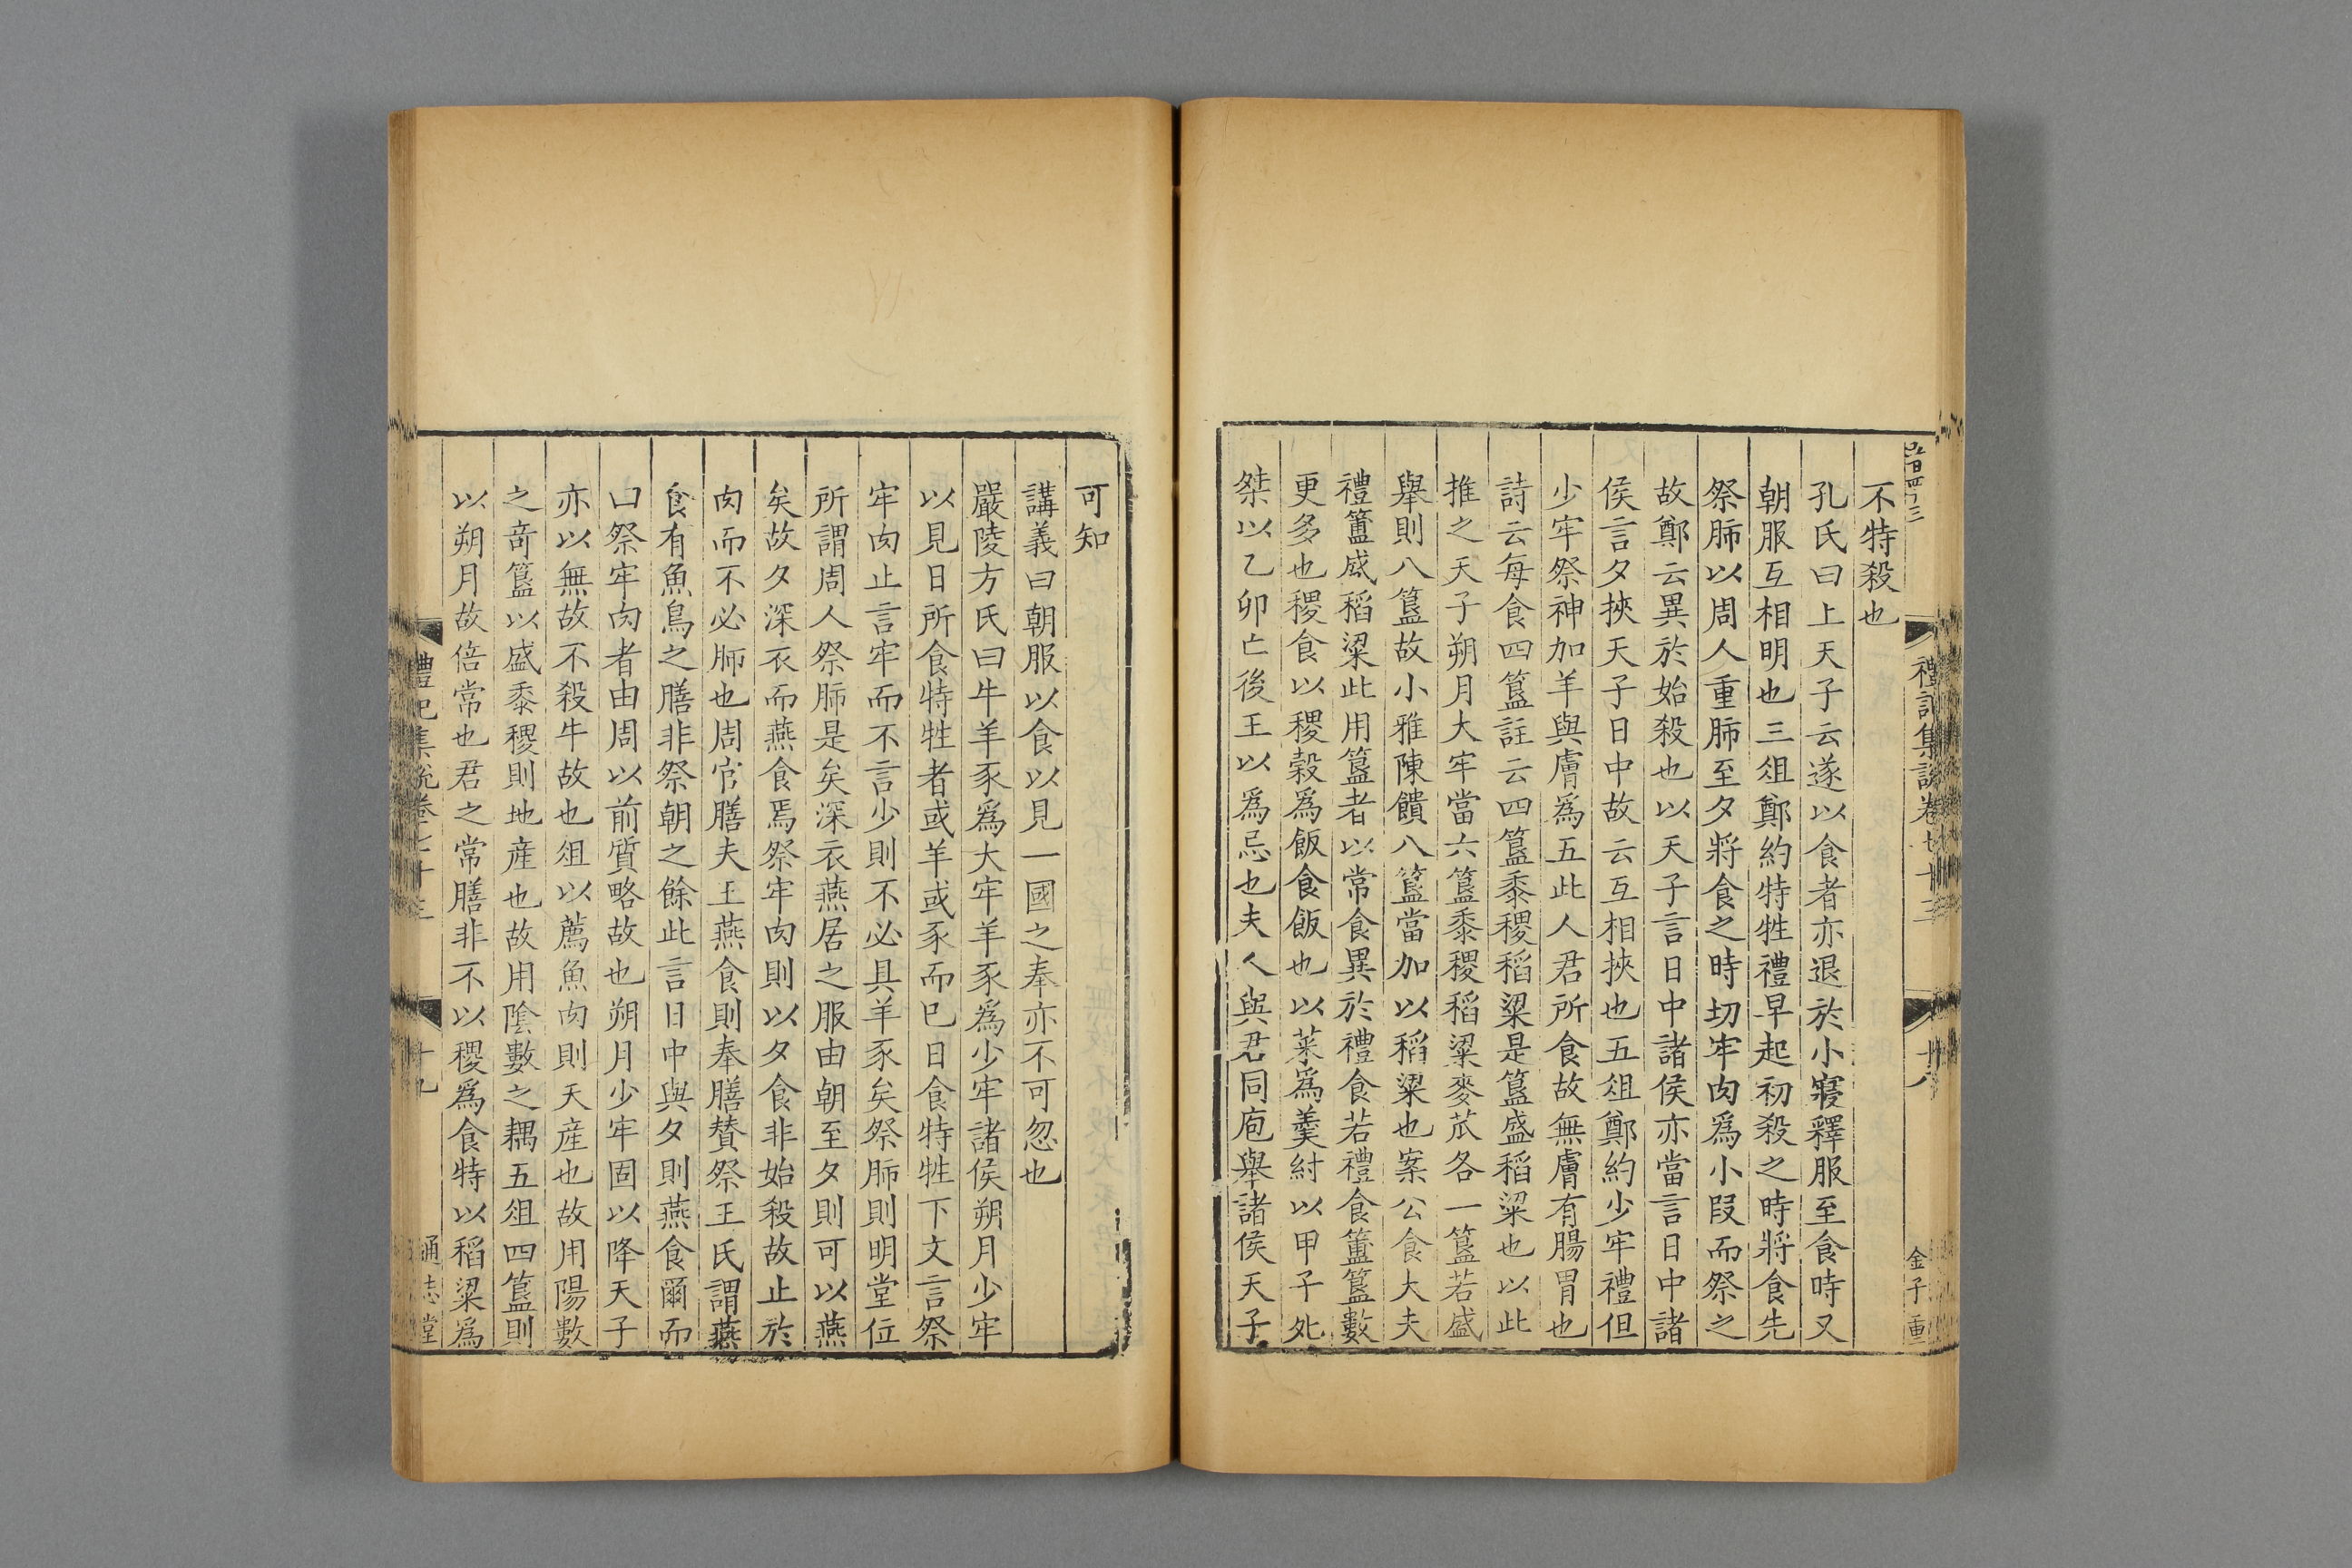 禮記集說卷七十三
十八
金子重
不特殺也
孔氏曰上天子云遂以食者亦退於小寢釋服至食時又
朝服互相明也三俎鄭約特牲禮早起初殺之時將食先
祭肺以周人重肺至夕將食之時切牢肉爲小段而祭之
故鄭云異於始殺也以天子言日中諸侯亦當言日中諸
侯言夕挾天子日中故云互相挾也五俎鄭約少牢禮但
少牢祭神加羊與膚爲五此人君所食故無膚有腸胃也
詩云每食四簋註云四簋黍稷稻粱是簋盛稻粱也以此
推之天子朔月大牢當六簋黍稷稻粱麥苽各一簋若盛
舉則八簋故小雅陳饋八簋當加以稻粱也案公食大夫
禮簠盛稻粱此用簋者以常食異於禮食若禮食簠簋數
更多也稷食以稷穀爲飯食飯也以菜爲羹紂以甲子死
桀以乙卯亡後王以爲忌也夫人與君同庖舉諸侯天子
可知
講義曰朝服以食以見一國之奉亦不可忽也
嚴陵方氏曰牛羊豕爲大牢羊豕爲少牢諸侯朔月少牢
以見日所食特牲者或羊或豕而已日食特牲下文言祭
牢肉止言牢而不言少則不必具羊豕矣祭肺則明堂位
所謂周人祭肺是矣深衣燕居之服由朝至夕則可以燕
矣故夕深衣而燕食焉祭牢肉則以夕食非始殺故止於
肉而不必肺也周官膳夫王燕食則奉膳贊祭王氏謂燕
食有魚鳥之膳非祭朝之餘此言日中與夕則燕食爾而
曰祭牢肉者由周以前質略故也朔月少牢固以降天子
亦以無故不殺牛故也俎以薦魚肉則天産也故用陽數
之奇簋以盛黍稷則地産也故用陰數之耦五俎四簋則
以朔月故倍常也君之常膳非不以稷爲食特以稻粱爲
禮記集說卷七十三
十九
通志堂